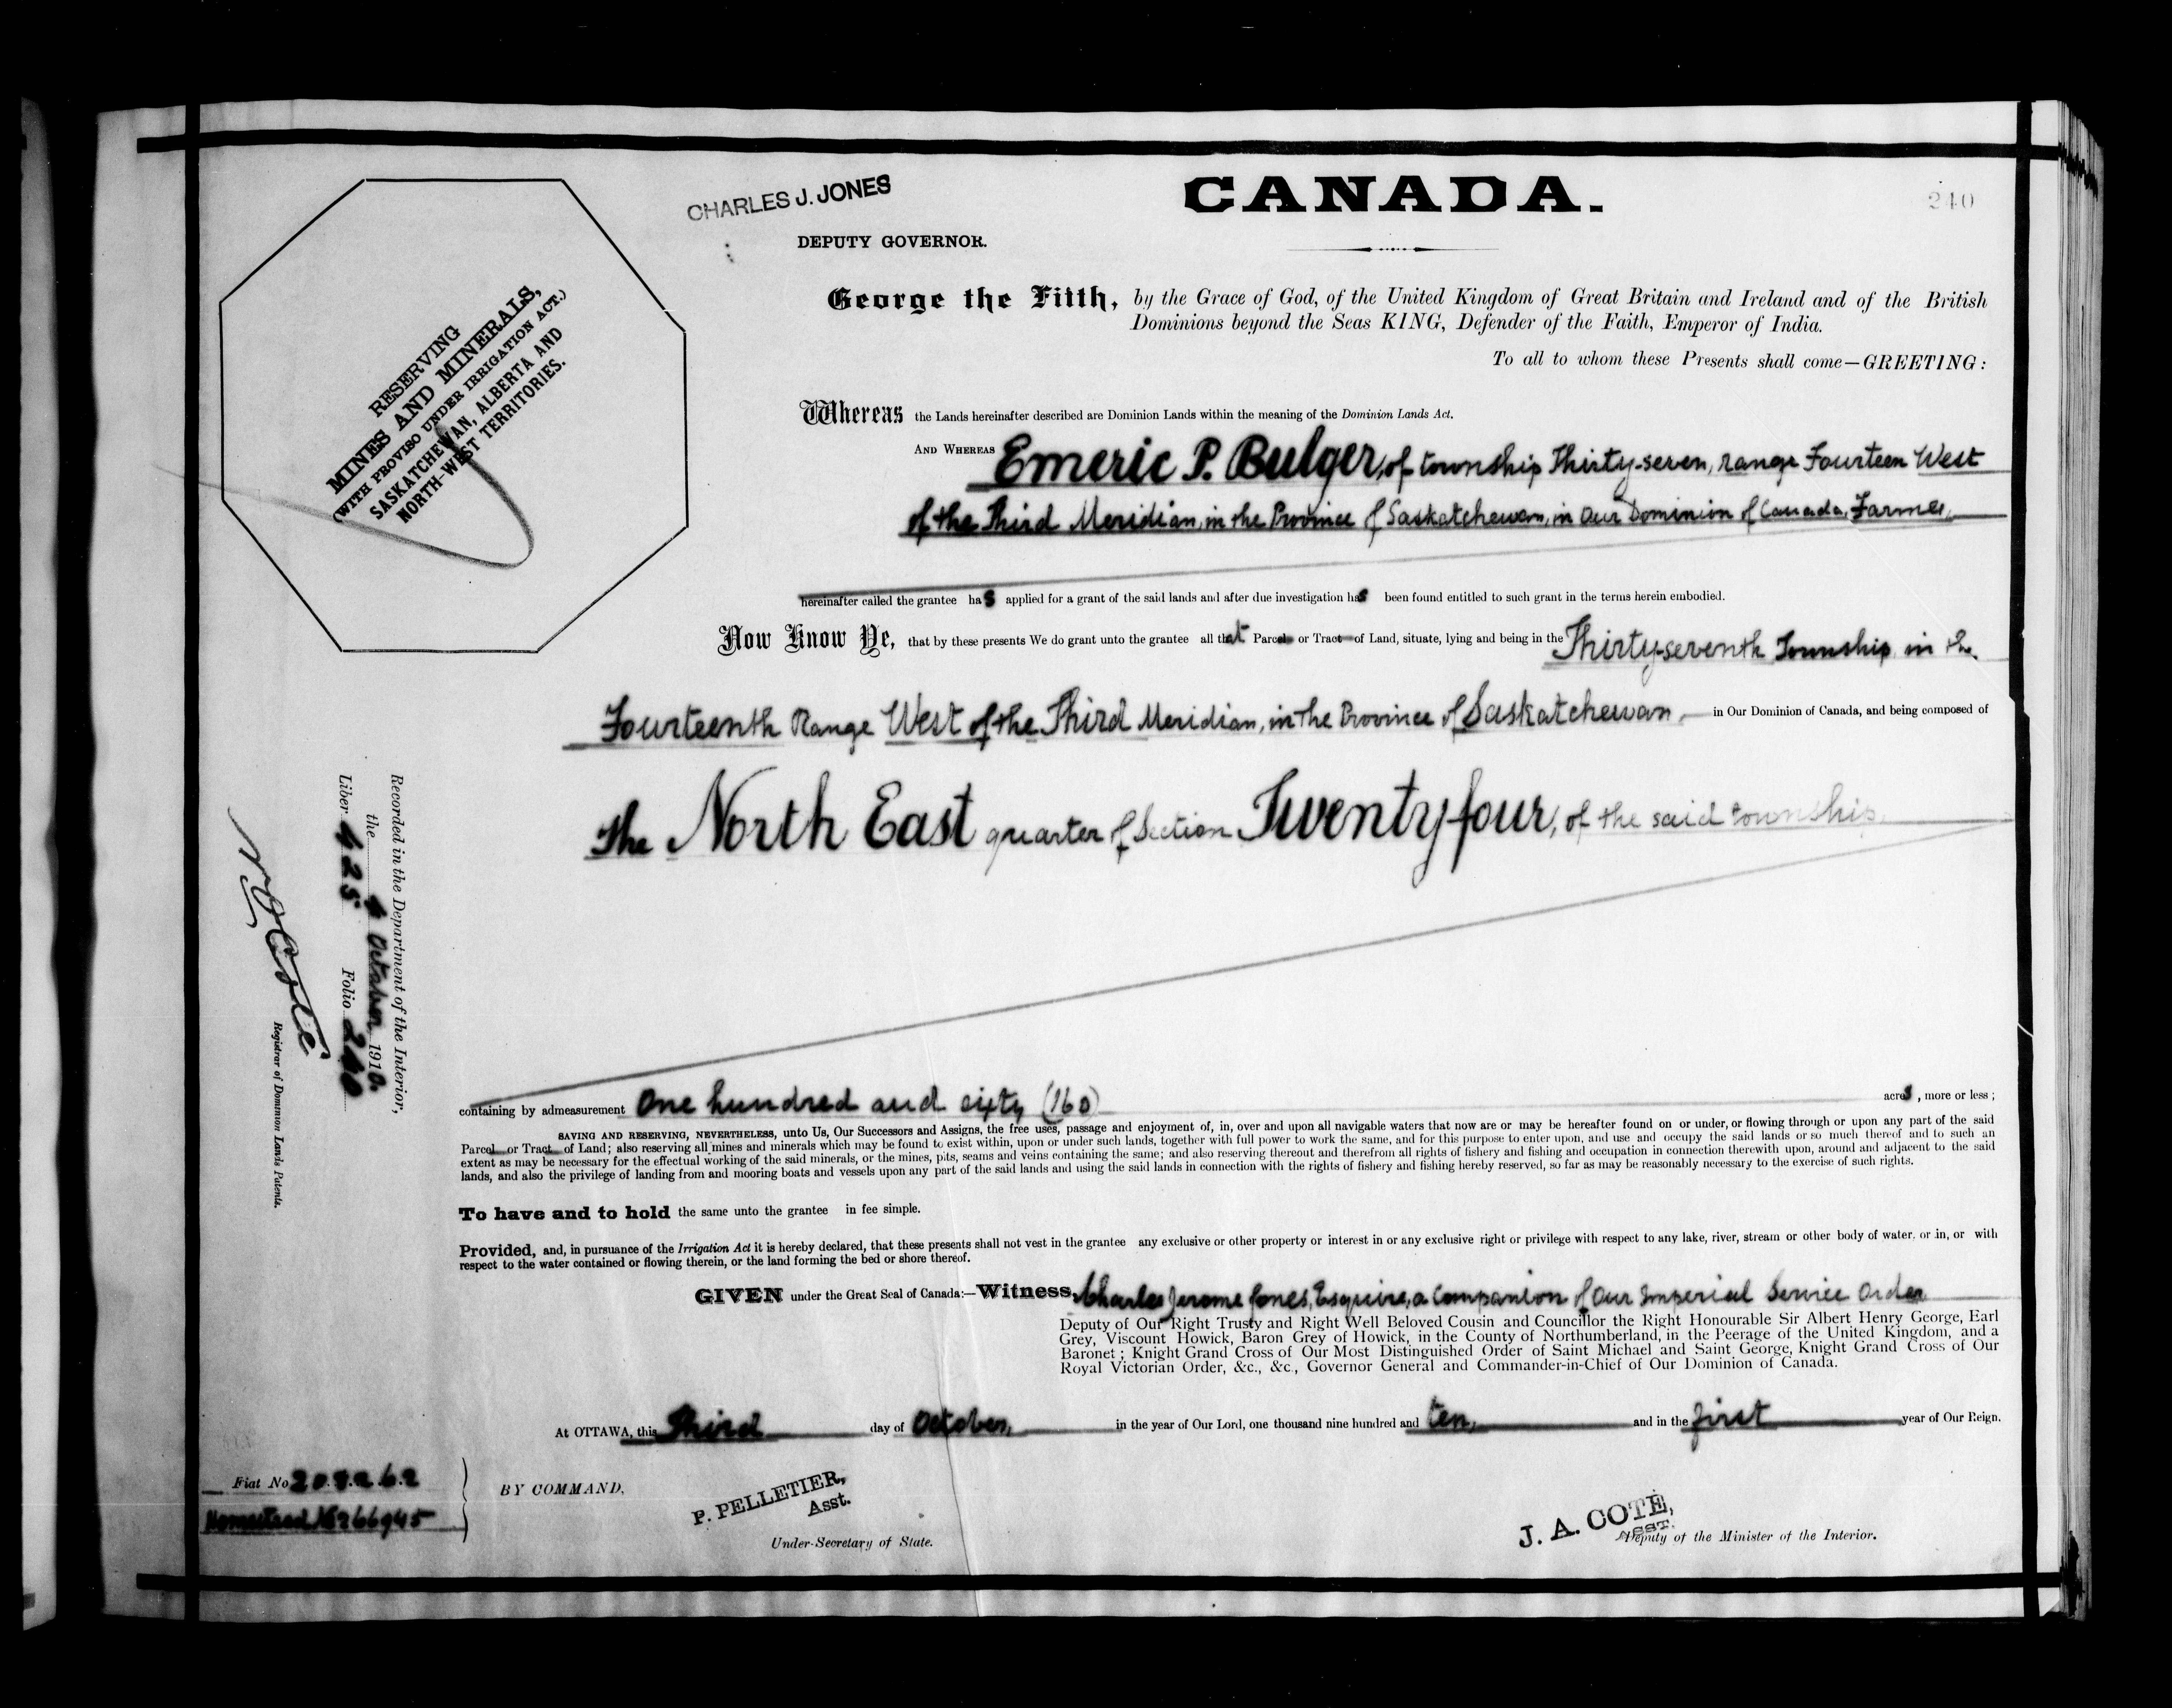 CHARLES J. JONES
CANADA.
240
DEPUTY GOVERNOR.
RESERVING
MINES AND MINERALS,
(WITH PROVISO UNDER IRRIGATION ACT.)
SASKATCHEWAN, ALBERTA AND
NORTH-WEST TERRITORIES.
George the Fifth, by the Grace of God, of the United Kingdom of Great Britain and Ireland and of the British
Dominions beyond the Seas KING, Defender of the Faith, Emperor of India.
To all to whom these Presents shall come—GREETING:
Whereas the Lands hereinafter described are Dominion Lands within the meaning of the Dominion Lands Act.
AND WHEREAS Emeric P. Bulger, of township Thirty-seven, range Fourteen West
of the Third Meridian, in the Province of Saskatchewan, in Our Dominion of Canada, Farmer,
hereinafter called the grantee has applied for a grant of the said lands and after due investigation has been found entitled to such grant in the terms herein embodied.
Now Know Ye, that by these presents We do grant unto the grantee all that Parcel or Tract of Land, situate, lying and being in the Thirty-seventh Township, in the
Fourteenth Range West of the Third Meridian, in the Province of Saskatchewan, in Our Dominion of Canada, and being composed of
The North East quarter of Section Twenty four, of the said township.
containing by admeasurement One hundred and sixty (160) acres, more or less;
SAVING AND RESERVING, NEVERTHELESS, unto Us, Our Successors and Assigns, the free uses, passage and enjoyment of, in, over and upon all navigable waters that now are or may be hereafter found on or under, or flowing through or upon any part of the said
Parcel or Tract of Land; also reserving all mines and minerals which may be found to exist within, upon or under such lands, together with full power to work the same, and for this purpose to enter upon, and use and occupy the said lands or so much thereof and to such an
extent as may be necessary for the effectual working of the said minerals, or the mines, pits, seams and veins containing the same; and also reserving thereout and therefrom all rights of fishery and fishing and occupation in connection therewith upon, around and adjacent to the said
lands, and also the privilege of landing from and mooring boats and vessels upon any part of the said lands and using the said lands in connection with the rights of fishery and fishing hereby reserved, so far as may be reasonably necessary to the exercise of such rights.
To have and to hold the same unto the grantee in fee simple.
Provided, and, in pursuance of the Irrigation Act it is hereby declared, that these presents shall not vest in the grantee any exclusive or other property or interest in or any exclusive right or privilege with respect to any lake, river, stream or other body of water, or in, or with
respect to the water contained or flowing therein, or the land forming the bed or shore thereof.
GIVEN under the Great Seal of Canada:—Witness, Charles Jerome Jones, Esquire, a Companion of Our Imperial Service Order
Deputy of Our Right Trusty and Right Well Beloved Cousin and Councillor the Right Honourable Sir Albert Henry George, Earl
Grey, Viscount Howick, Baron Grey of Howick, in the County of Northumberland, in the Peerage of the United Kingdom, and a
Baronet; Knight Grand Cross of Our Most Distinguished Order of Saint Michael and Saint George, Knight Grand Cross of Our
Royal Victorian Order, &c., &c., Governor General and Commander-in-Chief of Our Dominion of Canada.
At OTTAWA, this Third day of October, in the year of Our Lord, one thousand nine hundred and ten, and in the first year of Our Reign.
Fiat No 208262
Homestead No 266945
BY COMMAND,
P. PELLETIER,
Asst.
Under-Secretary of State.
J. A. COTÉ,
ASST.
Deputy of the Minister of the Interior.
Recorded in the Department of the Interior,
the 4 October 1910.
Liber 425 Folio 240
Coté
Registrar of Dominion Lands Patents.